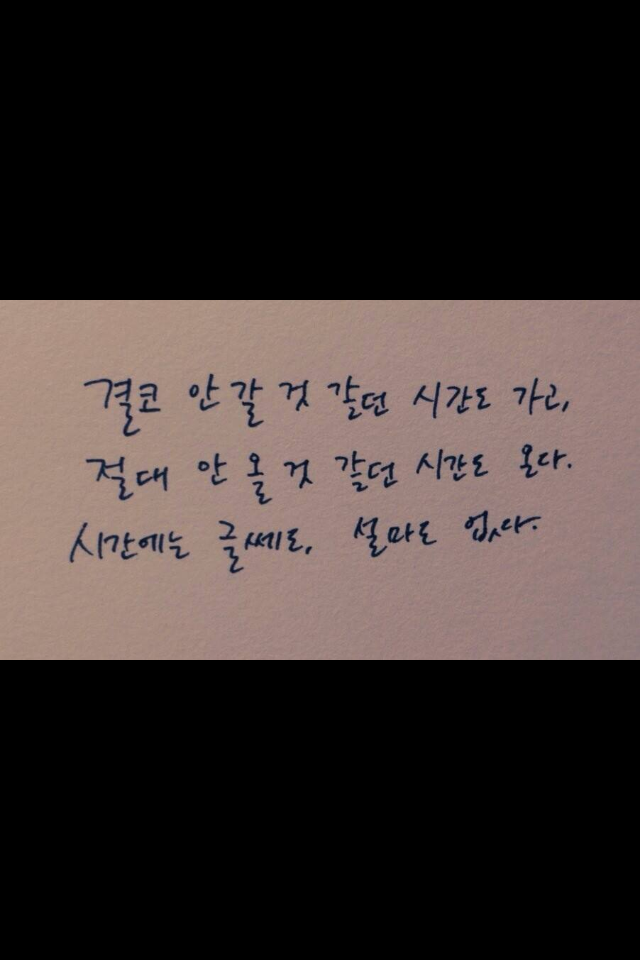 결코 안 갈 것 같던 시간도 가고,
절대 안 올 것 같던 시간도 온다.
시간에는 글쎄도, 설마도 없다.